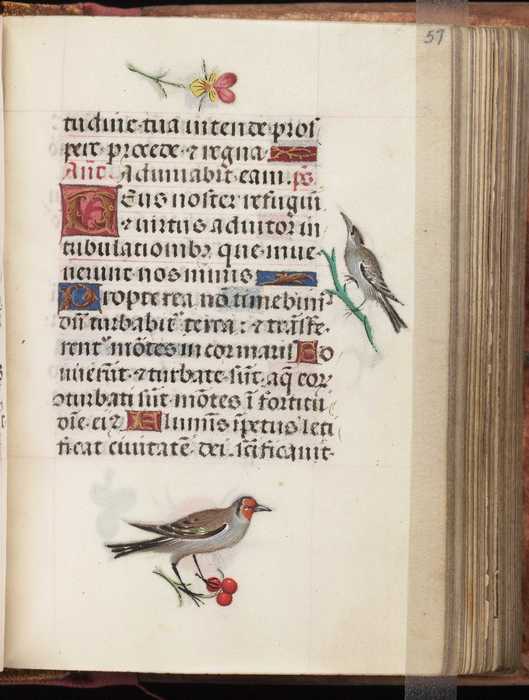 57
tudine tua intende pros
pere procede ⁊ regna
Añt. Adiuuabit eam. ps
Deus noster refugiũ
⁊ uirtus adiutor in
tribulationibꝰ que inue
nerunt nos nimis
Propterea nõ timebimꝰ
dũ turbabit͛ terra: ⁊ trãsfe
rent͛ mõtes in cor maris So
nuerũt ⁊ turbate sũt aq̃ eoꝝ
cõturbati sũt mõtes ĩ fortitu
dĩe eiꝰ Fluminis ĩpetus leti
ficat ciuitatẽ dei scĩficauit